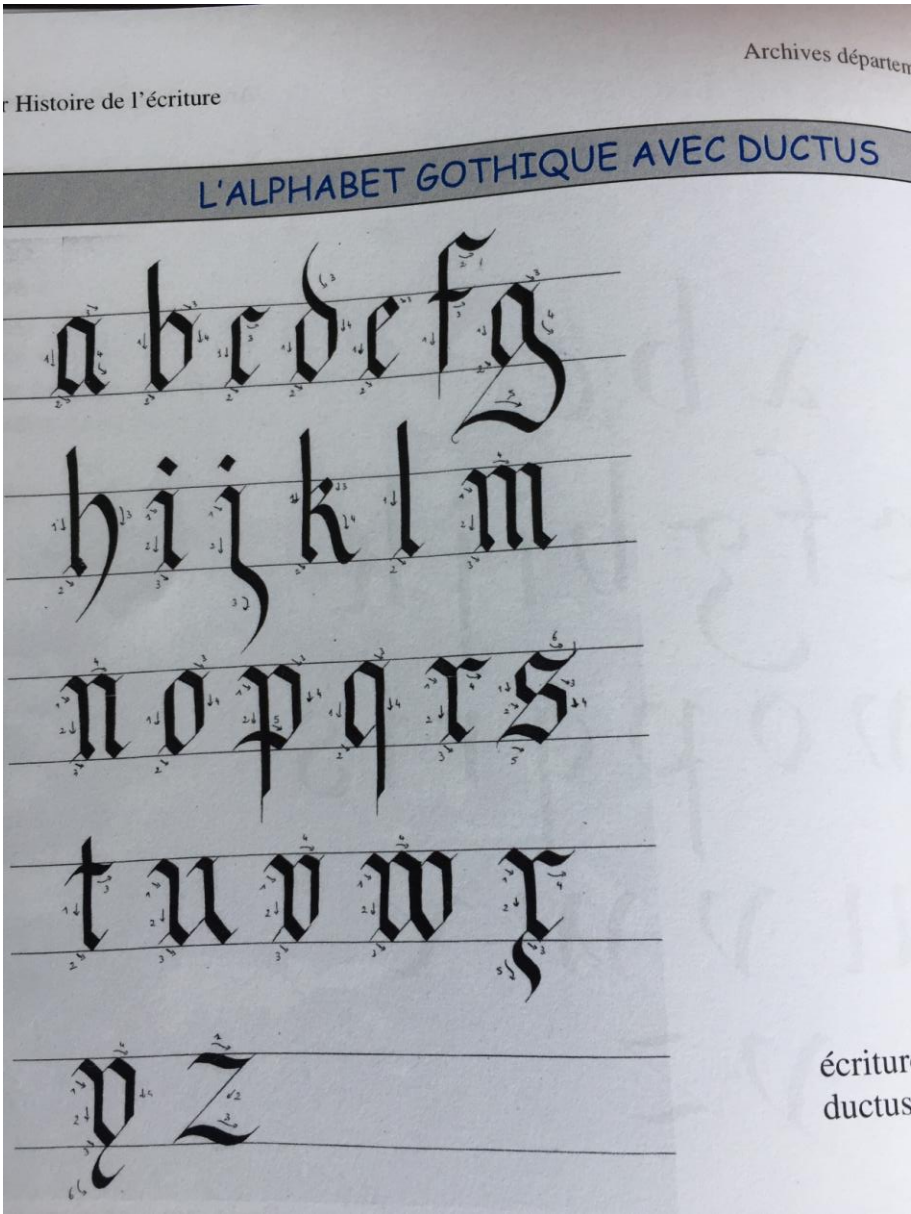 Archives départem
r Histoire de l'écriture
L'ALPHABET GOTHIQUE AVEC DUCTUS
a b c d e f g
h i j k l m
n o p q r s
t u v w x
y z
écriture
ductus